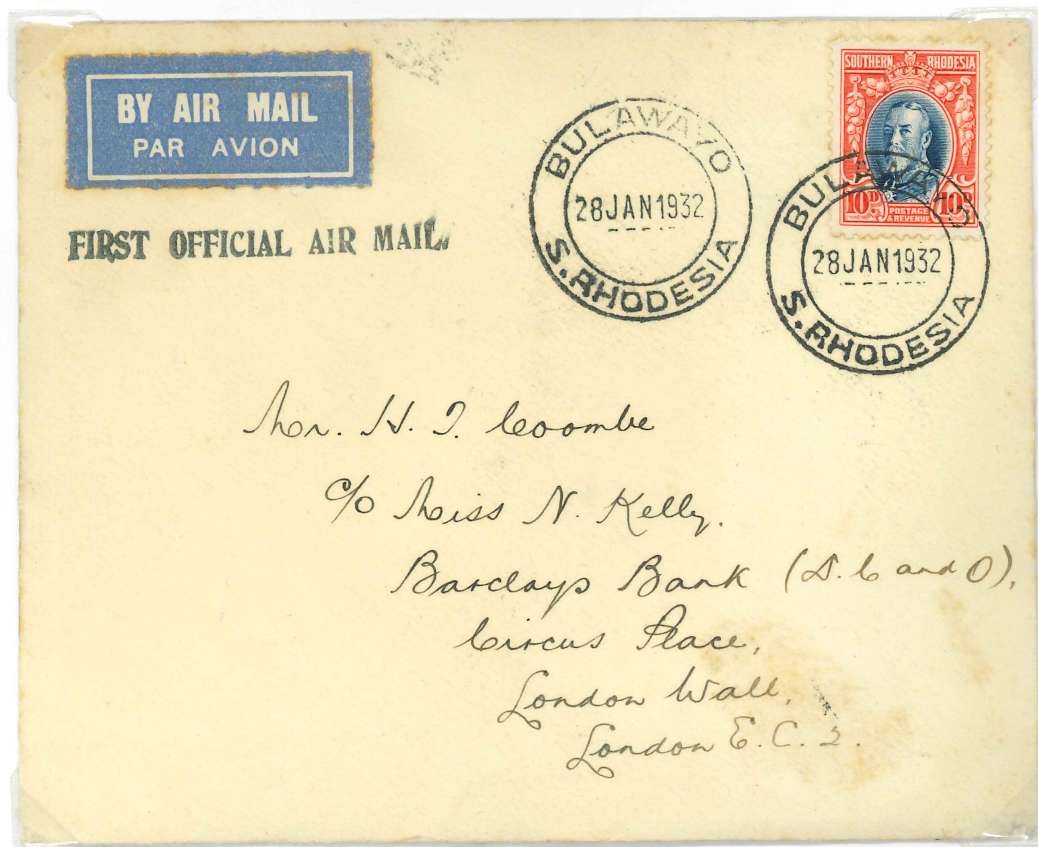 BY AIR MAIL
PAR AVION
FIRST OFFICIAL AIR MAIL.
BULAWAYO
28JAN1932
S. RHODESIA
SOUTHERN RHODESIA
10D POSTAGE & REVENUE 10D
BULAWAYO
28JAN1932
S. RHODESIA
Mr. H. J. Coombe
c/o Miss N. Kelly.
Barclays Bank (D. C and O),
Circus Place,
London Wall,
London E.C. 2.